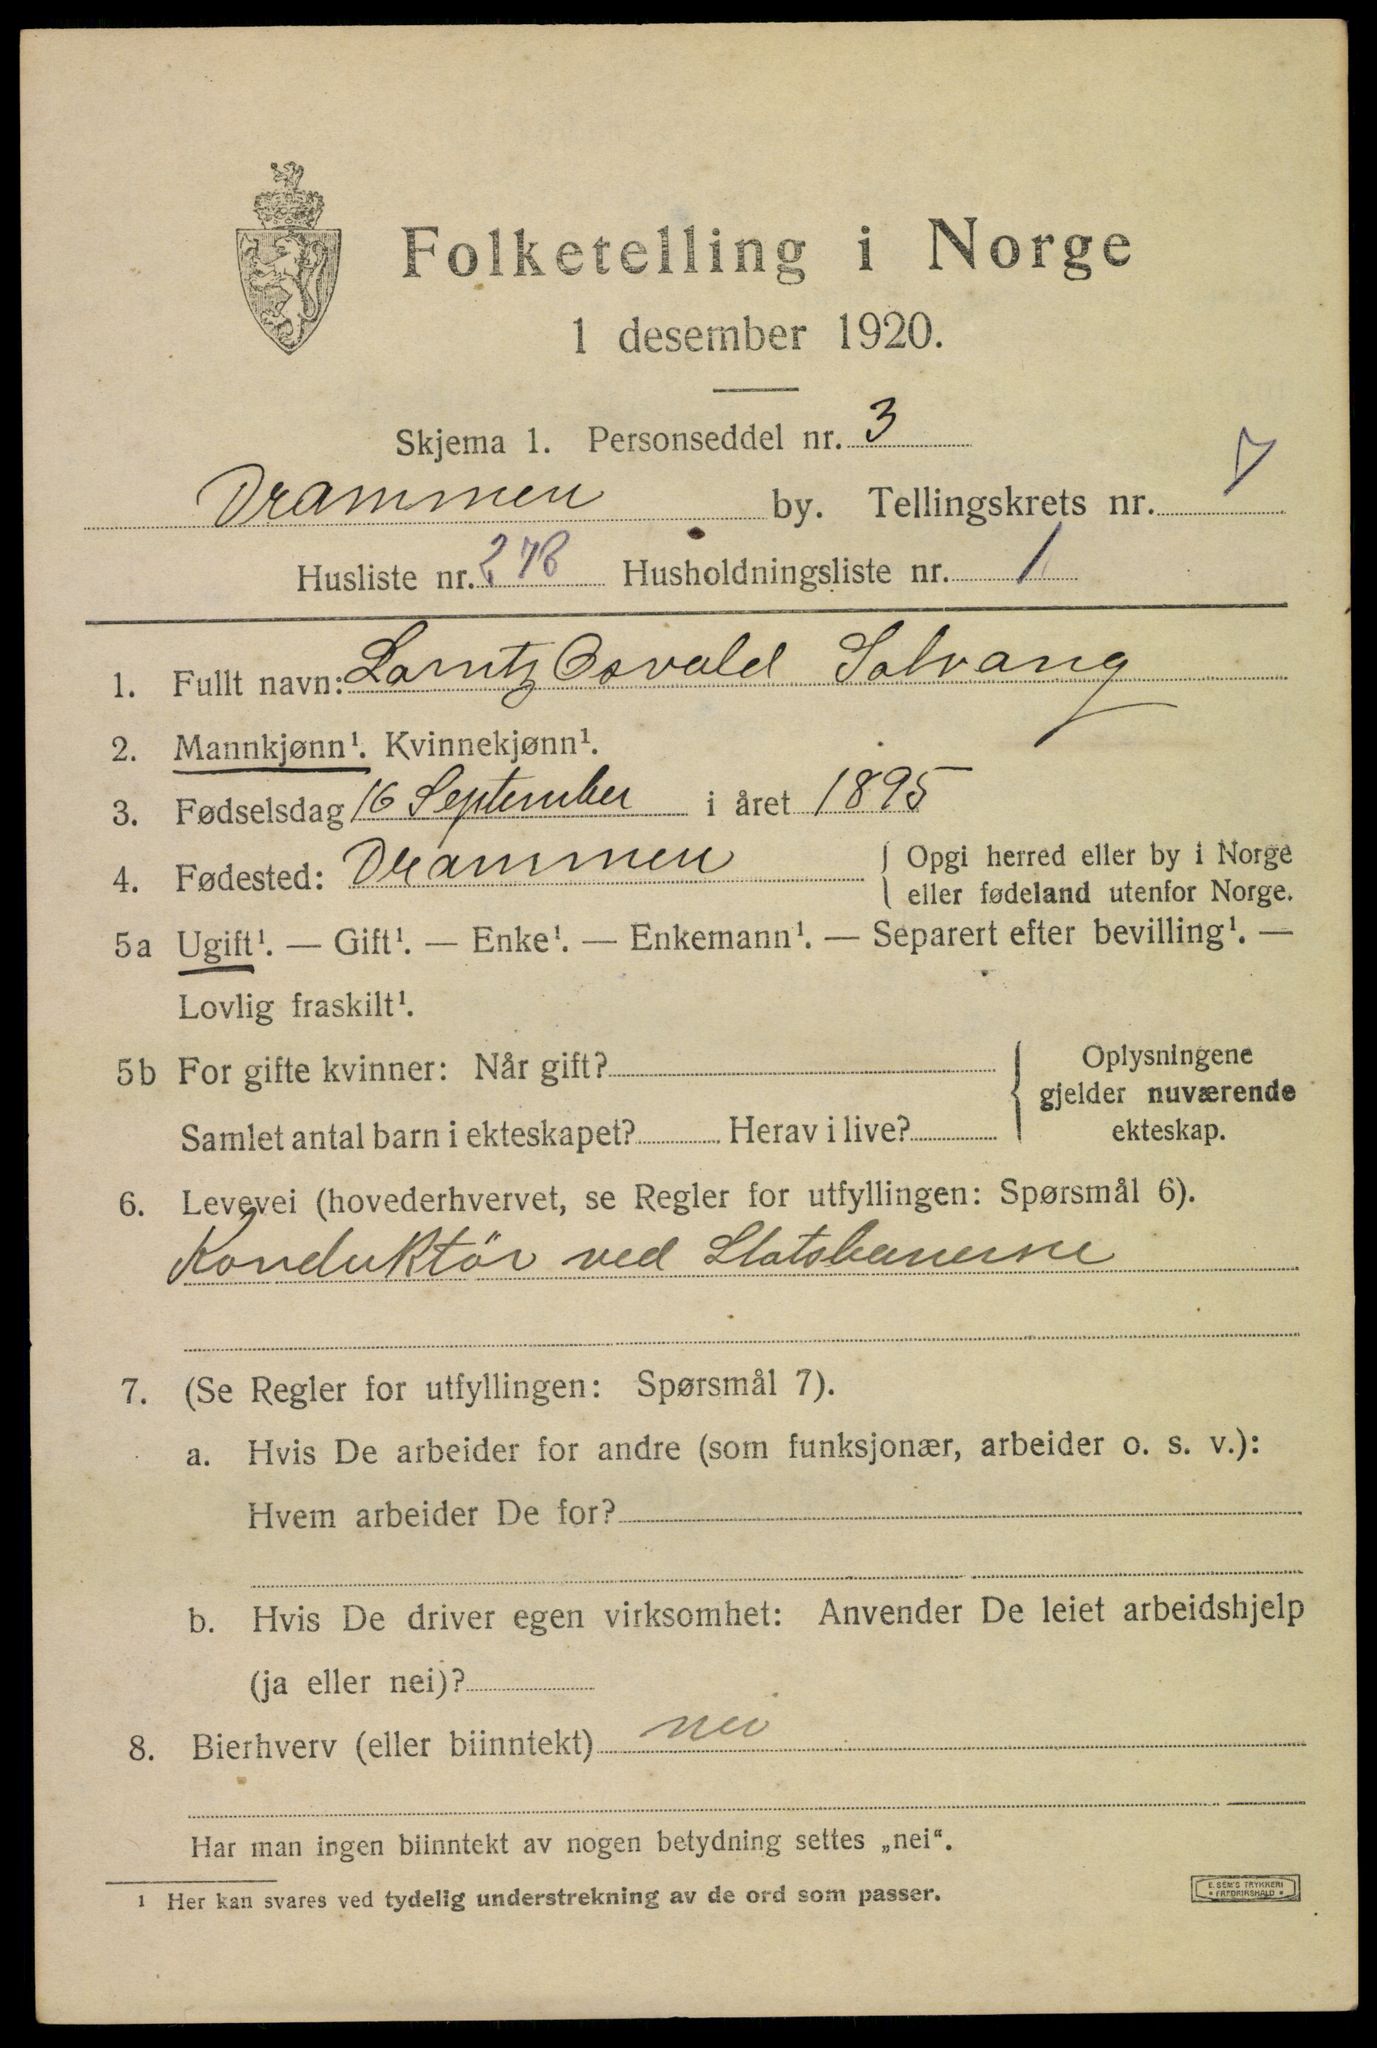 Folketelling i Norge
1 desember 1920.
Skjema 1. Personseddel nr. 3
Drammen by. Tellingskrets nr. 7
Husliste nr. 278 Husholdningsliste nr. 1
1. Fullt navn: Lorntz Osvald Solvang
2. Mannkjønn¹. Kvinnekjønn¹.
3. Fødselsdag 16 September i året 1895
4. Fødested: Drammen { Opgi herred eller by i Norge
eller fødeland utenfor Norge.
5a Ugift¹. — Gift¹. — Enke¹. — Enkemann¹. — Separert efter bevilling¹. —
Lovlig fraskilt¹.
5b For gifte kvinner: Når gift?
Samlet antal barn i ekteskapet? Herav i live?
{ Oplysningene
gjelder nuværende
ekteskap.
6. Levevei (hovederhvervet, se Regler for utfyllingen: Spørsmål 6).
Konduktör ved Statsbanerne
7. (Se Regler for utfyllingen: Spørsmål 7).
a. Hvis De arbeider for andre (som funksjonær, arbeider o. s. v.):
Hvem arbeider De for?
b. Hvis De driver egen virksomhet: Anvender De leiet arbeidshjelp
(ja eller nei)?
8. Bierhverv (eller biinntekt) nei
Har man ingen biinntekt av nogen betydning settes „nei“.
1 Her kan svares ved tydelig understrekning av de ord som passer.
E. SEM'S TRYKKERI
* FREDRIKSHALD *